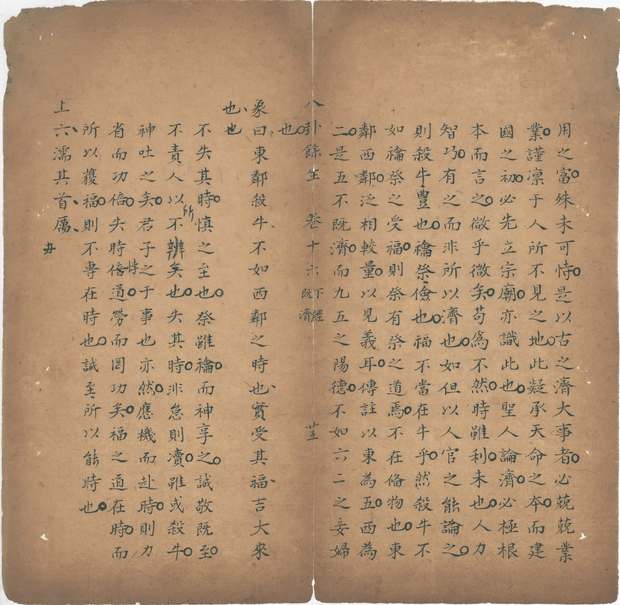 用之富殊未可恃是以古之濟大事者必兢兢業
業謹凛于人所不見之地此疑承天命之本而建
國之初必先立宗廟亦識此也聖人論濟必極根
本而言之微乎微矣苟爲不然時雖利未也人力
智巧有之而非所以濟也如但以人官之能論之
則殺牛豐也禴祭儉也福不當在牛乎然殺牛不
如禴祭之受福則祭有祭之道焉不在備物也東
鄰西鄰泛相較量以見義耳傳註以東為五西為
二是五不既濟而九五之陽德不如六二之妾婦
八卦餘生 卷十六 下經 既濟
也
象曰東鄰殺牛不如西鄰之時也實受其福吉大來
也也
不失其時慎之至也祭雖禴而神享之誠敬既至
不責人以所不辨矣也失其時非怠則凟雖或殺牛
神吐之矣君子之于事也亦然應機而赴時則力
省而功倍失時悖道勞而罔功矣福之道在時而
所以獲福則不專在時也誠至所以能時也
上六濡其首厲